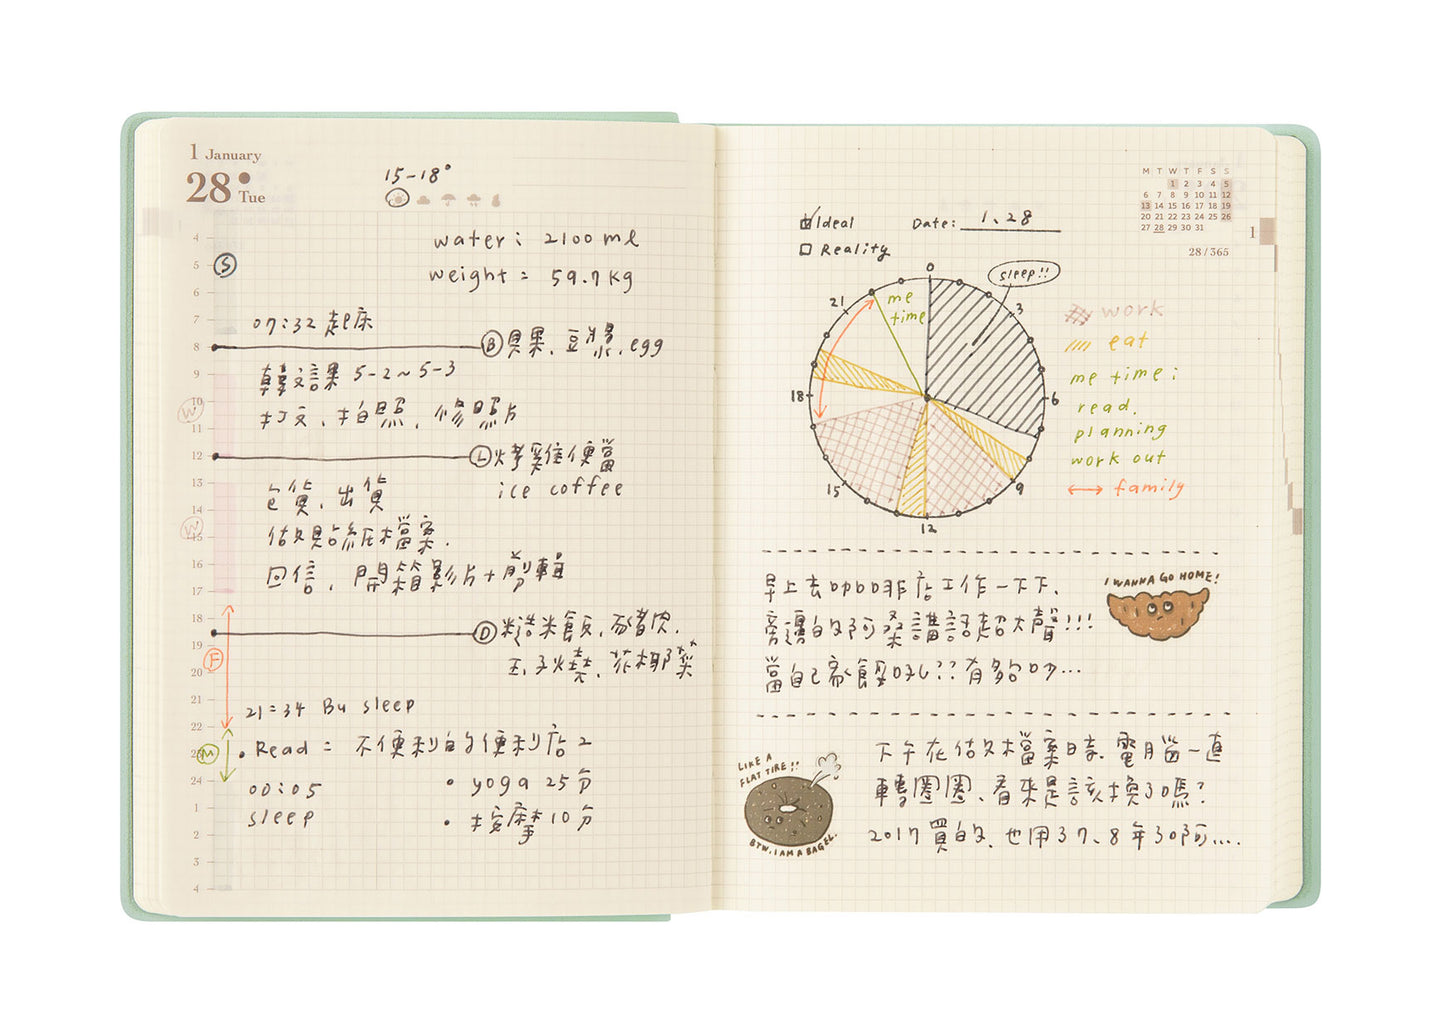 1 January
28 Tue
15-18°
water: 2100 ml
weight = 59.7 kg
4
5
6
7
8
9
10
11
12
13
14
15
16
17
18
19
20
21
22
23
24
1
2
3
4
S
W
W
F
M
07:32 起床
B 貝果、豆漿、egg
韓文課 5-2~5-3
打文、拍照、修照片
L 烤雞便當
ice coffee
包貨、出貨
做貼紙檔案.
回信、開箱影片+剪輯
D 糙米飯、豬肉、
玉子燒、花椰菜
21:34 Bu sleep
• Read = 不便利的便利店2
00:05
sleep
• yoga 25分
• 按摩 10分
M T W T F S S
1 2 3 4 5
6 7 8 9 10 11 12
13 14 15 16 17 18 19
20 21 22 23 24 25 26
27 28 29 30 31
28/365
1
Ideal
Reality
Date: 1.28
0
3
6
9
12
15
18
21
sleep!!
me
time
work
eat
me time:
read.
planning
work out
family
早上去咖啡店工作一下下、
旁邊的阿桑講話超大聲!!!
當自己家餒??有夠吵...
I WANNA GO HOME!
LIKE A
FLAT TIRE!!
BTW, I AM A BAGEL.
下午在做檔案時、電腦一直
轉圈圈、看來是該換了嗎?
2017買的、也用了7、8年了啊....